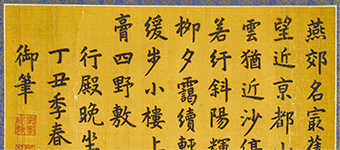 燕郊名㝡舊
望近京都山
雲猶近沙傷
若紆斜陽輝
柳夕靄續輕
緩步小樓上
膏四野敷
行殿晚坐
丁丑季春
御筆